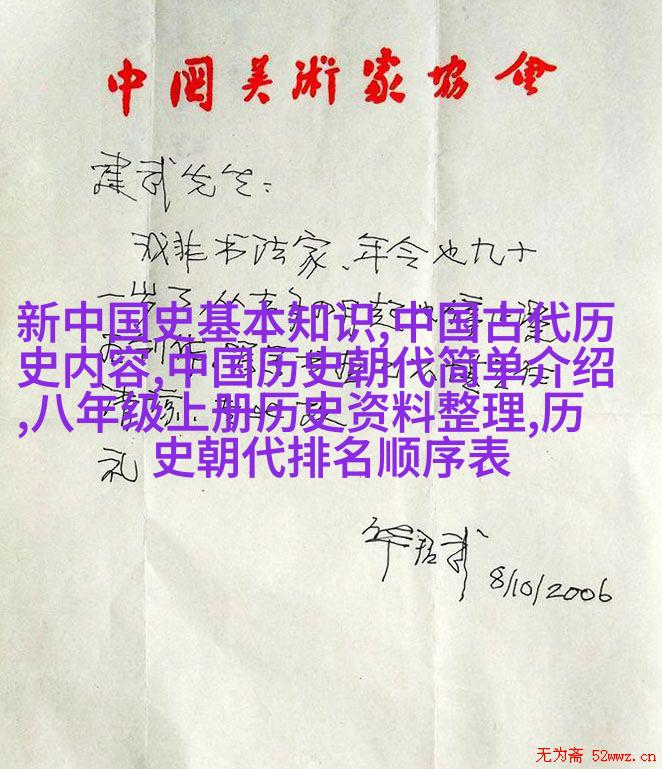 中国美術家協會
建武先生：
我非书法家、年令也九十
一岁了
新中国史基本知识,中国古代历
史内容,中国历史朝代简单介绍
,八年级上册历史资料整理,历
史朝代排名顺序表
礼
华君武
8/10/2006
无为斋 52wwz.cn